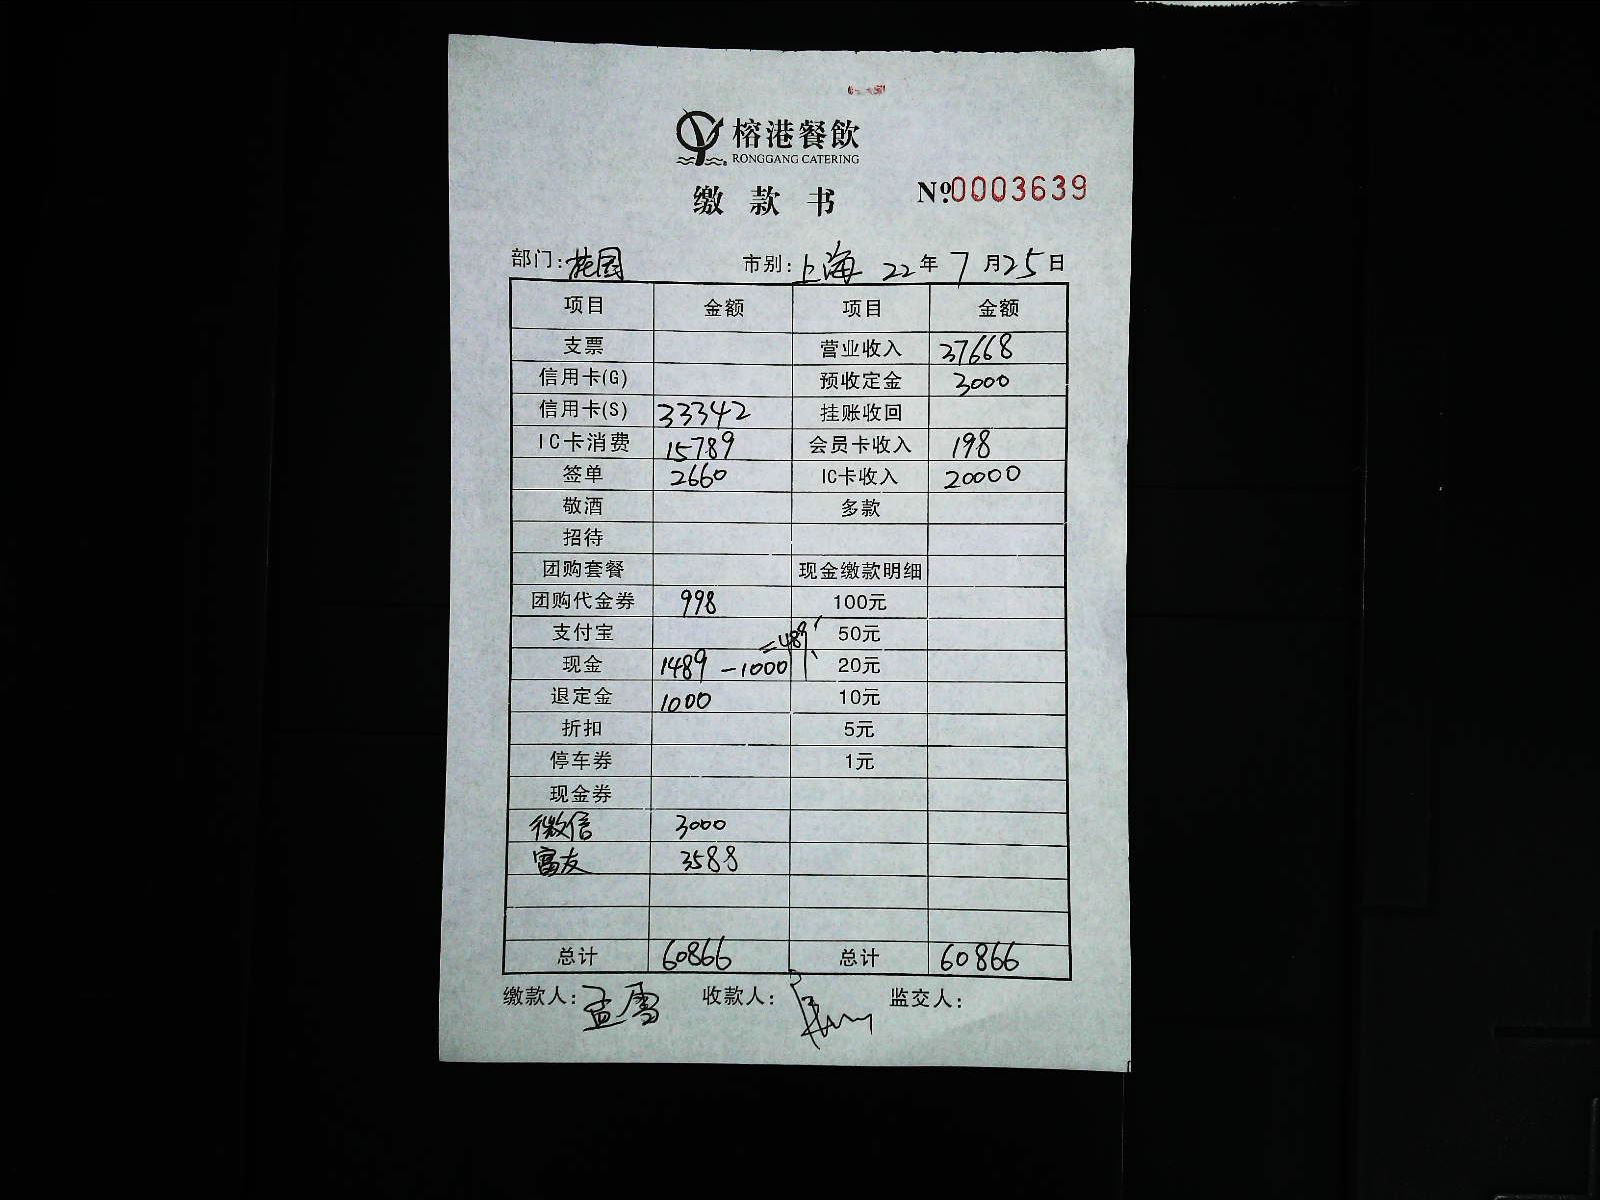 榕港餐飲
RONGGANG CATERING
缴款书 №0003639
部门:桂园 市别:上海 22年7月25日
项目 金额 项目 金额
支票 营业收入 37668
信用卡(G) 预收定金 3000
信用卡(S) 33342 挂账收回
IC卡消费 15789 会员卡收入 198
签单 2660 IC卡收入 20000
敬酒 多款
招待
团购套餐 现金缴款明细
团购代金券 998 100元
支付宝 50元
现金 1489 -1000 =489 20元
退定金 1000 10元
折扣 5元
停车券 1元
现金券
微信 3000
富友 3588
总计 60866 总计 60866
缴款人:孟雪 收款人: 监交人: